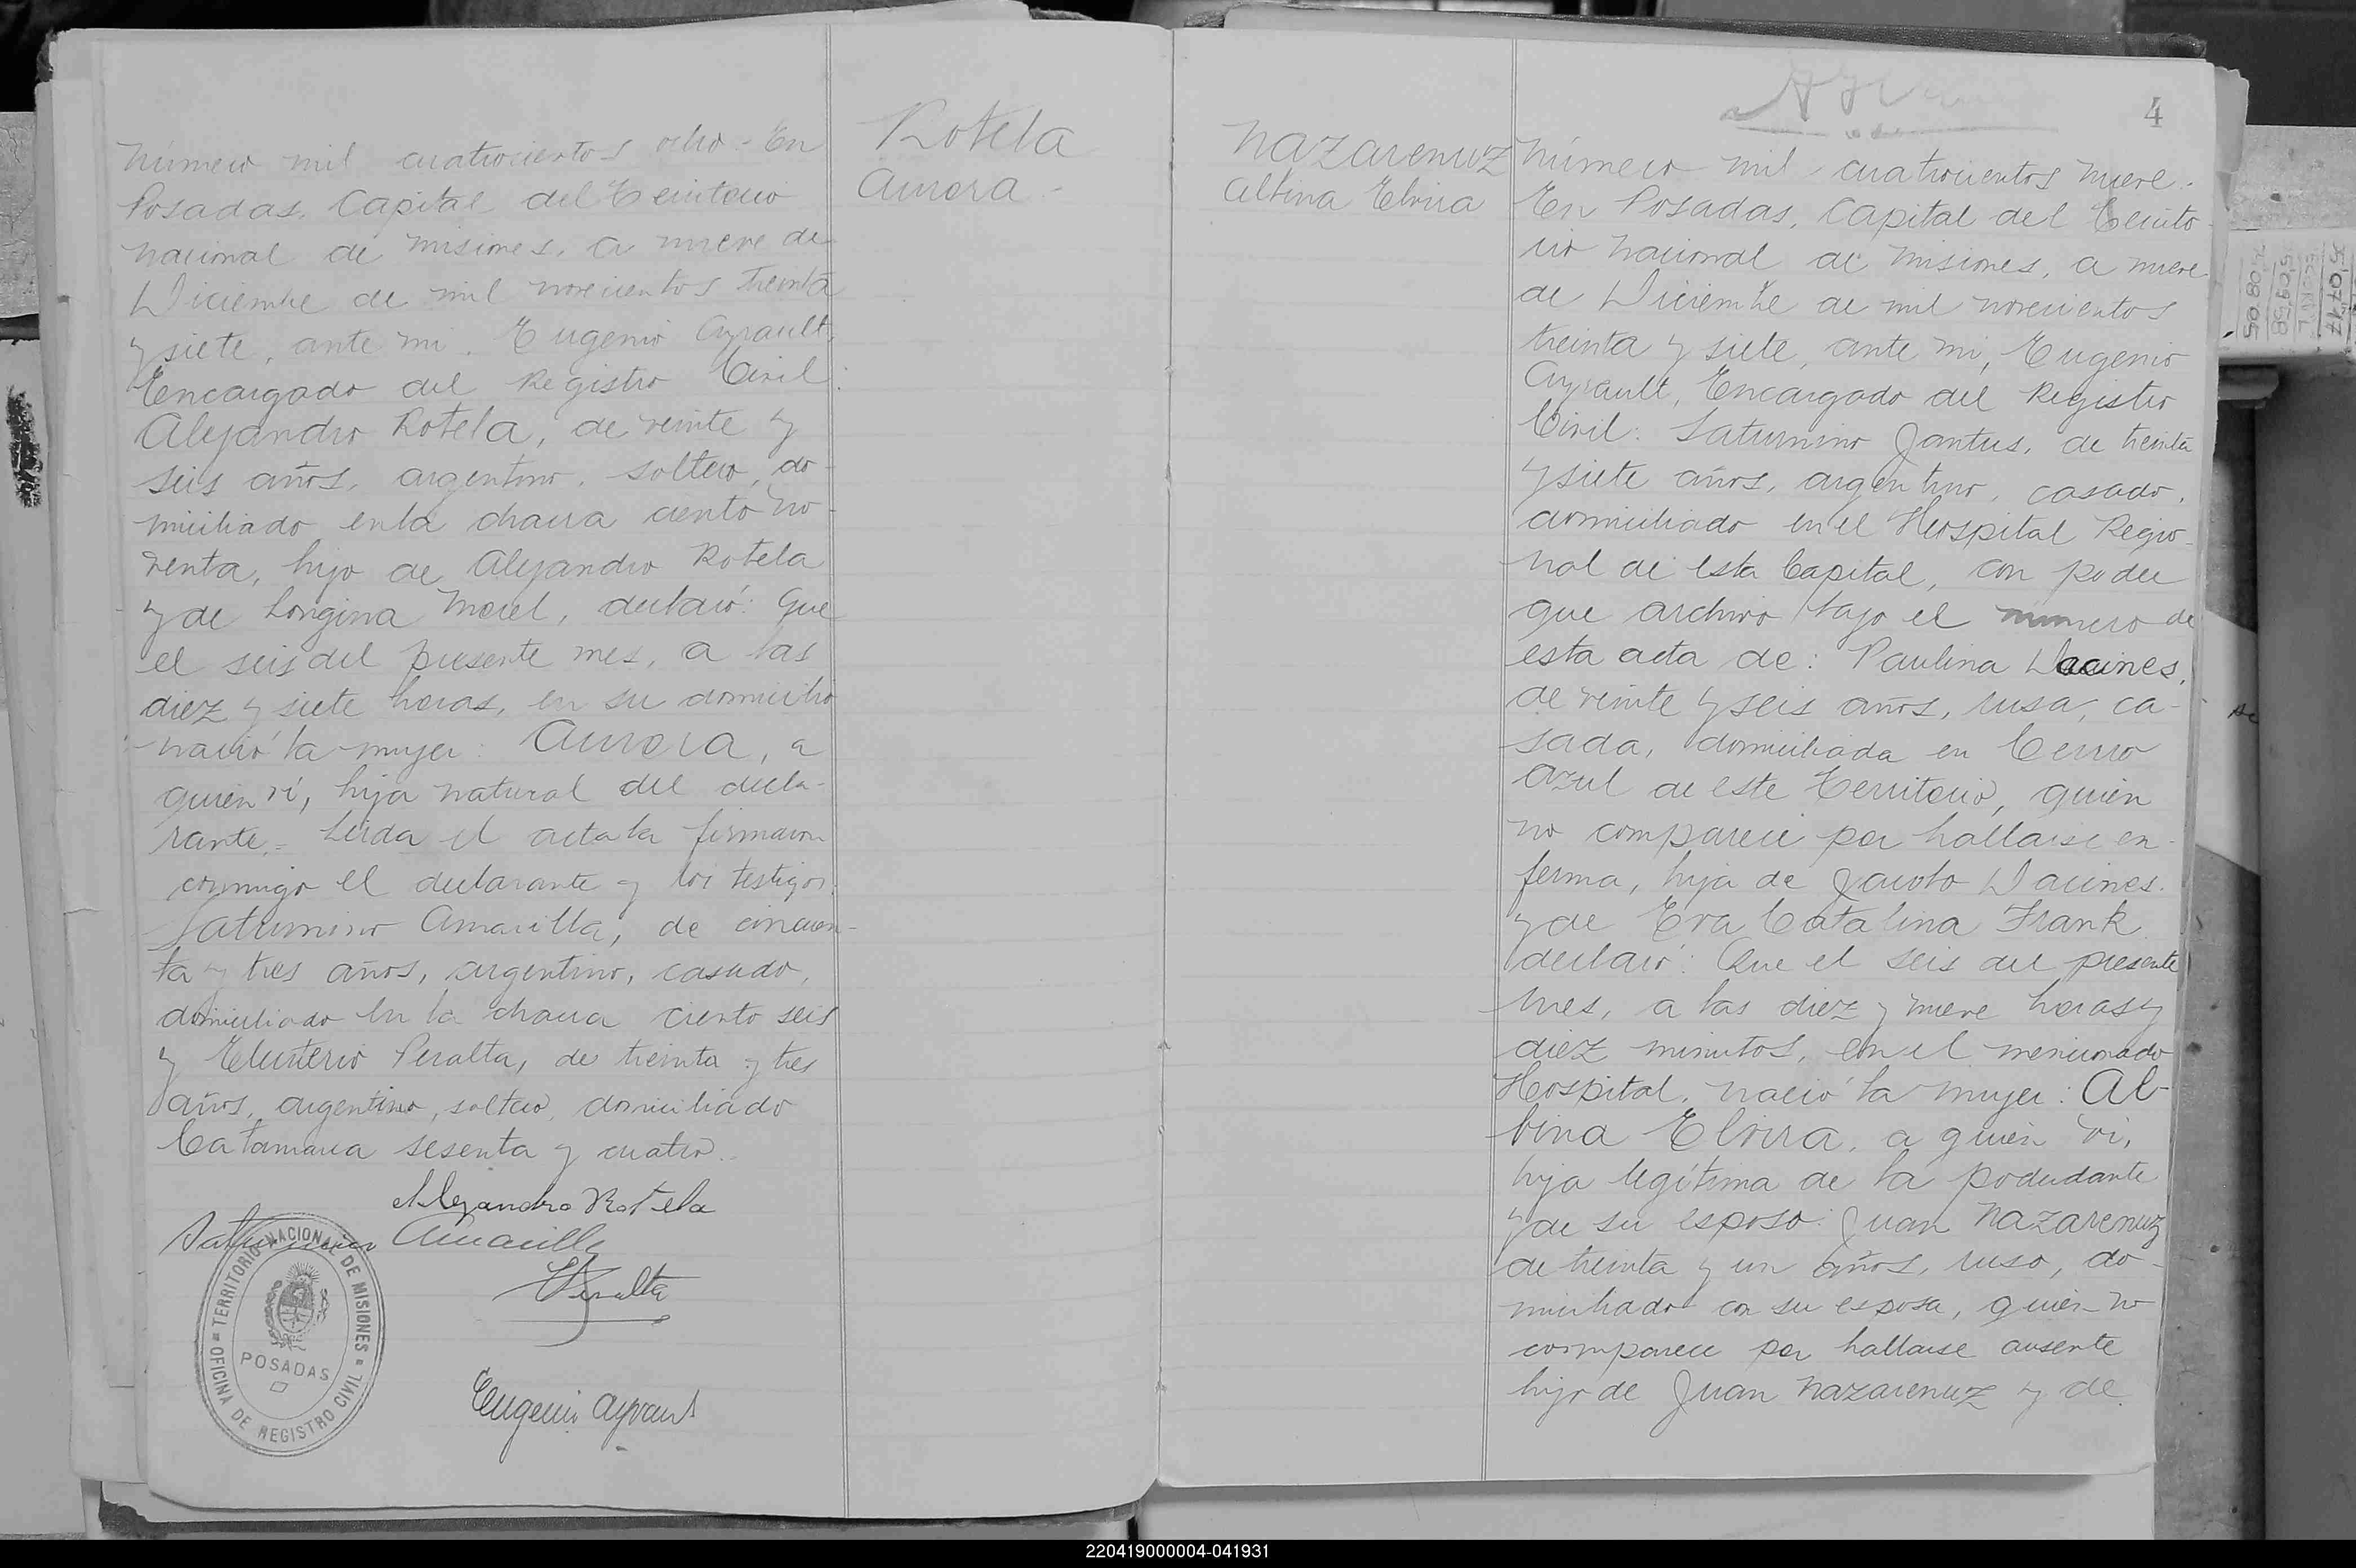 Número mil cuatrocientos ocho - En
Posadas, Capital del Territorio
Nacional de Misiones, a nueve de
Diciembre de mil novecientos treinta
y siete, ante mi, Eugenio Ayrault,
Encargado del Registro Civil:
Alejandro Rotela, de veinte y
seis años, argentino, soltero, do-
miciliado en la chacra ciento no-
venta, hijo de Alejandro Rotela
y de Longina Morel, declaró: Que
el seis del presente mes, a las
diez y siete horas, en su domicilio
nació la mujer: Aurora, a
quien ví, hija natural del decla-
rante.= Leida el acta la firmaron
conmigo el declarante y los testigos:
Saturnino Amarilla, de cincuen-
ta y tres años, argentino, casado,
domiciliado en la chacra ciento seis
y Eleuterio Peralta, de treinta y tres
años, argentino, soltero, domiciliado
Catamarca sesenta y cuatro.
Alejandro Rotela
Saturnino Amarilla
EPeralta
Eugenio Ayrault
TERRITORIO NACIONAL DE MISIONES
POSADAS
OFICINA DE REGISTRO CIVIL
Rotela
Aurora -
Nazarenuz
Albina Elvira
4
Número mil cuatrocientos nueve.
En Posadas, Capital del Territo-
rio Nacional de Misiones, a nueve
de Diciembre de mil novecientos
treinta y siete, ante mi, Eugenio
Ayrault, Encargado del Registro
Civil: Saturnino Jantus, de treinta
y siete años, argentino, casado,
domiciliado en el Hospital Regio-
nal de esta Capital, con poder
que archivo bajo el numero de
esta acta de: Paulina Dacines,
de veinte y seis años, rusa, ca-
sada, domiciliada en Cerro
Azul de este Territorio, quien
no comparece por hallarse en-
ferma, hija de Jacobo Dacines
y de Eva Catalina Frank
declaró: Que el seis del presente
mes, a las diez y nueve horas y
diez minutos, en el mencionado
Hospital, nació la mujer: Al-
bina Elvira, a quien vi,
hija legítima de la poderdante
y de su esposo: Juan Nazarenuz
de treinta y un años, ruso, do-
miciliado con su esposa, quien no
comparece por hallarse ausente
hijo de Juan Nazarenuz y de
220419000004-041931